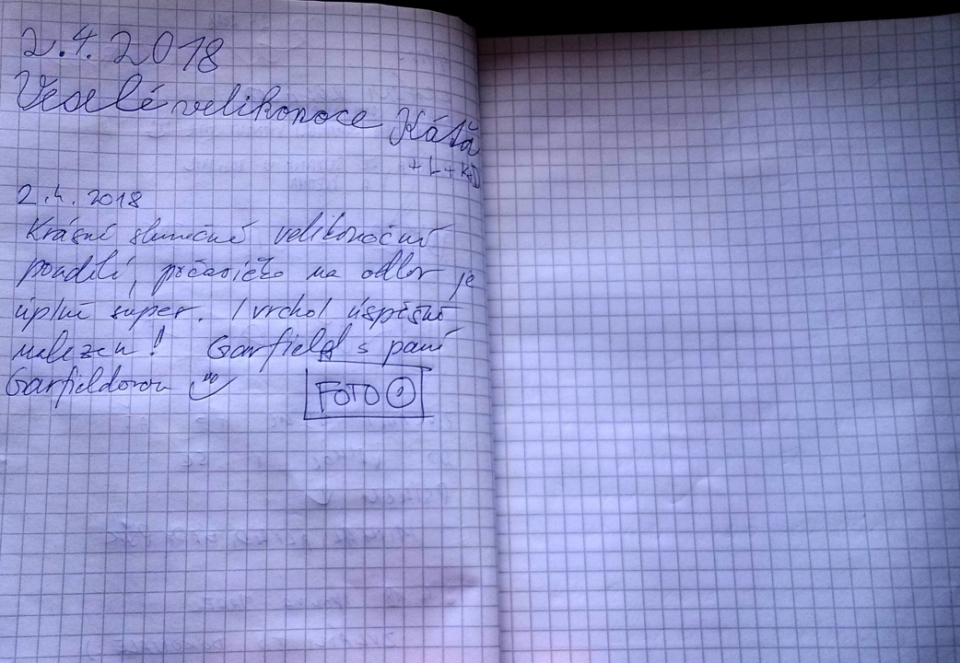 2.4.2018
Veselé velikonoce Káťa
+ L + K+D
2.4.2018
Krásné slunečné velikonoční
pondělí, počasíčko na odlov je
úplně super. I vrchol úspěšně
nalezen! Garfield s paní
Garfieldovou
FOTO